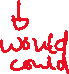 would
could